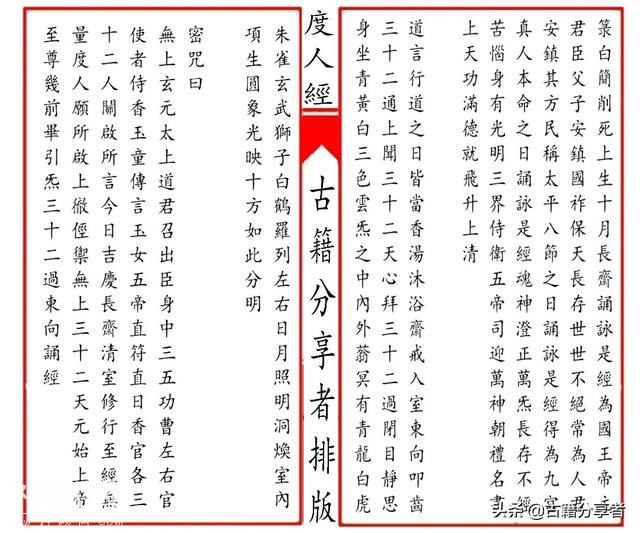 箓白簡削死上生十月長齋誦詠是經為國王帝主
君臣父子安鎮國祚保天長存世世不絕常為人君
安鎮其方民稱太平八節之日誦詠是經得為九宮
真人本命之日誦詠是經魂神澄正萬炁長存不經
苦惱身有光明三界侍衛五帝司迎萬神朝禮名書
上天功滿德就飛升上清
道言行道之日皆當香湯沐浴齋戒入室東向叩齒
三十二通上聞三十二天心拜三十二過閉目靜思
身坐青黃白三色雲炁之中內外蓊冥有青龍白虎
度人經
古籍分享者排版
朱雀玄武獅子白鶴羅列左右日月照明洞煥室內
項生圓象光映十方如此分明
密咒曰
無上玄元太上道君召出臣身中三五功曹左右官
使者侍香玉童傳言玉女五帝直符直日香官各三
十二人關啟所言今日吉慶長齋清室修行至經無
量度人願所啟上徹俓禦無上三十二天元始上帝
至尊幾前畢引炁三十二過東向誦經
头条@古籍分享者